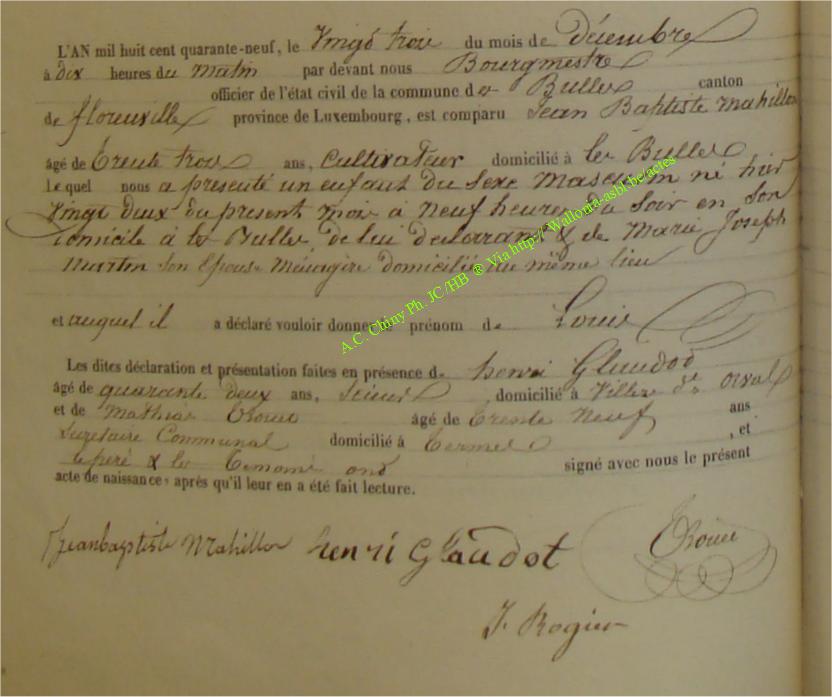 L'AN mil huit cent quarante-neuf, le Vingt trois du mois de décembre
à dix heures du matin par devant nous Bourgmestre
officier de l'état civil de la commune de Bulles canton
de florenville province de Luxembourg, est comparu Jean Baptiste Mahillon
âgé de trente trois ans, Cultivateur domicilié à les Bulles
Le quel nous a présenté un enfant du sexe Masculin né hier
Vingt deux du present mois à Neuf heures du Soir en son
domicile à les Bulles, de lui déclarant & de Marie Joseph
Martin son Epouse Ménagère domicilié au même lieu
et auquel il a déclaré vouloir donner prénom de Louis
Les dites déclaration et présentation faites en présence de henri Glaudot
âgé de quarante deux ans, domicilié à Villers dt orval
et de Mathias âgé de trente Neuf ans
Secretaire Communal domicilié à termes, et
le pere & les temoins ont signé avec nous le présent
acte de naissance, après qu'il leur en a été fait lecture.
Jeanbaptiste Mahillon henri Glaudot
J. Rogier
A.C. Chiny Ph. JC/HB ® Via http://Wallonia-asbl.be/actes